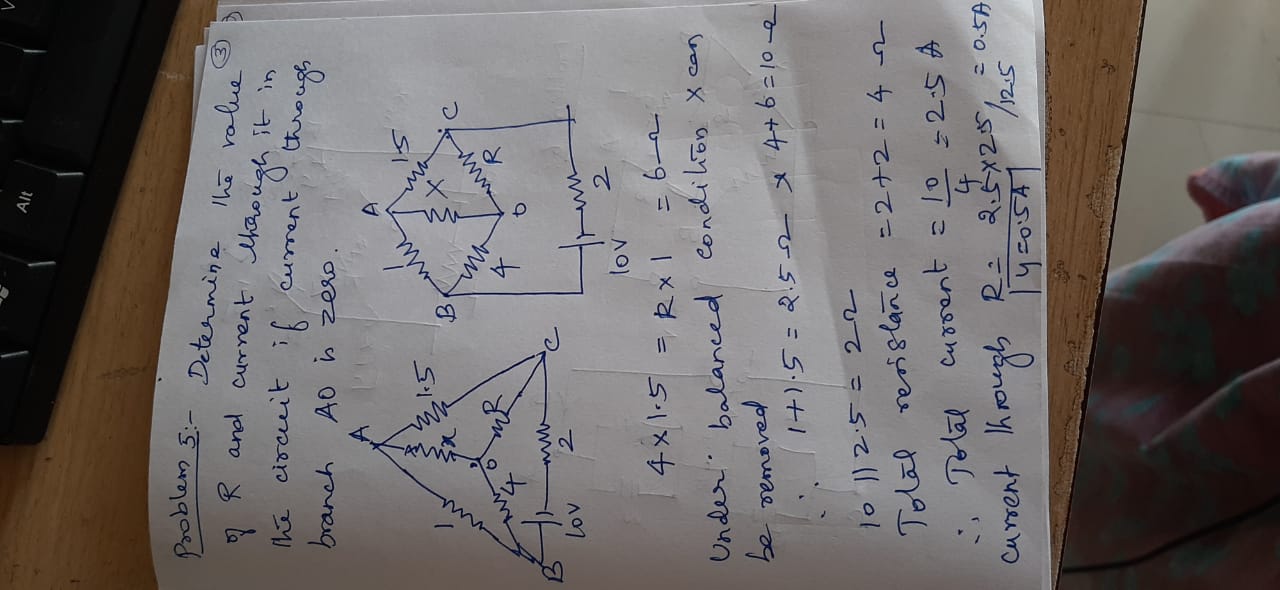 ③
Problem 5:- Determine the value
of R and current through it in
the circuit if current through
branch AO is zero.
A
1
1.5
x
O
R
4
B
C
10V
2
A
1
1.5
X
B
C
4
R
O
10V
2
4 × 1.5 = R × 1 = 6 Ω
Under balanced condition x can
be removed
∴ 1+1.5 = 2.5 Ω x 4+6=10 Ω
10 || 2.5 = 2 Ω
Total resistance = 2+2 = 4 Ω
∴ Total current = 10/4 = 2.5 A
current through R = 2.5 × 2.5 / 12.5 = 0.5A
Y=0.5A
Alt